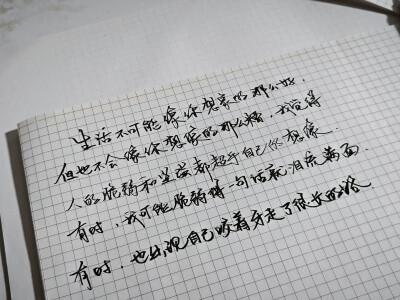 生活不可能像你想象的那么好，
但也不会像你想象的那么糟，我觉得
人的脆弱和坚强都超乎自己的想象，
有时，我可能脆弱得一句话就泪流满面，
有时，也发现自己咬着牙走了很长的路